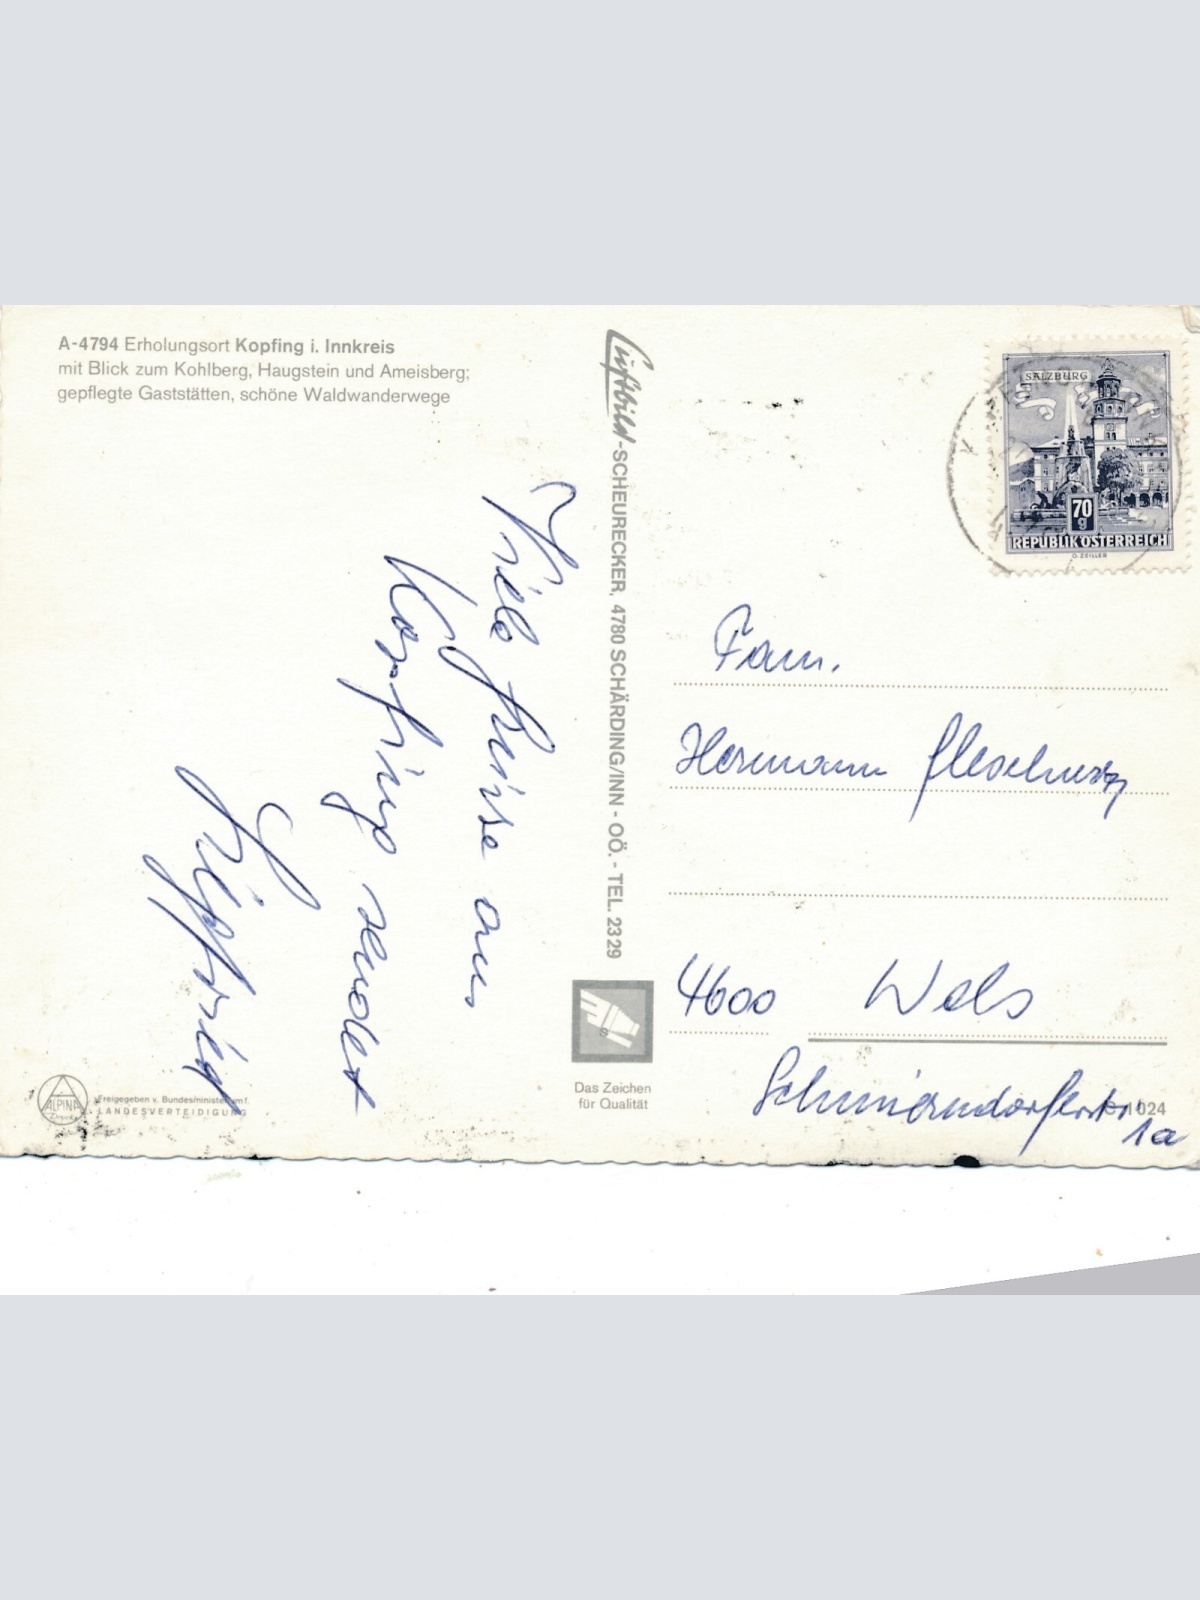 A-4794 Erholungsort Kopfing i. Innkreis
mit Blick zum Kohlberg, Haugstein und Ameisberg;
gepflegte Gaststätten, schöne Waldwanderwege
Viele Grüsse aus
Kopfing sendet
Luftbild-SCHEURECKER, 4780 SCHÄRDING/INN - OÖ. - TEL. 2329
Das Zeichen
für Qualität
ALPINA
Freigegeben v. Bundesministerium f.
LANDESVERTEIDIGUNG
SALZBURG
70
g
REPUBLIK ÖSTERREICH
O. ZEILLER
Fam.
Hermann
4600 Wels
1024
1a